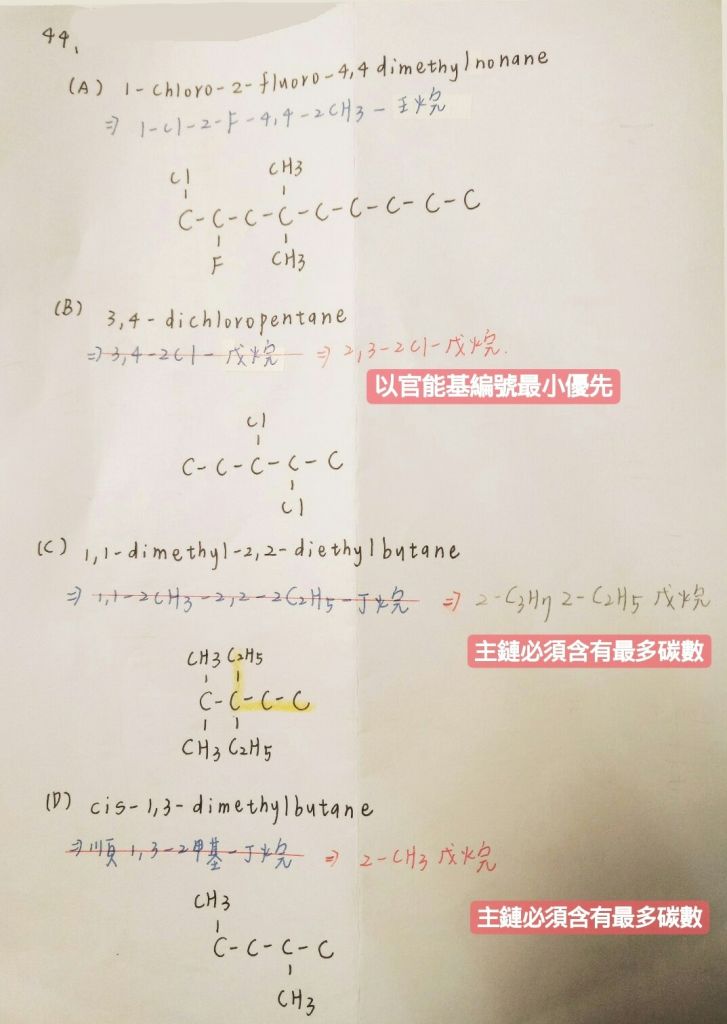 44.
(A) 1-chloro-2-fluoro-4,4 dimethylnonane
⇒ 1-Cl-2-F-4,4-2CH3-壬烷
Cl CH3
C-C-C-C-C-C-C-C-C
F CH3
(B) 3,4-dichloropentane
⇒ 3,4-2Cl-戊烷 ⇒ 2,3-2Cl-戊烷.
以官能基編號最小優先
Cl
C-C-C-C-C
Cl
(C) 1,1-dimethyl-2,2-diethylbutane
⇒ 1,1-2CH3-2,2-2C2H5-丁烷 ⇒ 2-C3H7 2-C2H5 戊烷
主鏈必須含有最多碳數
CH3 C2H5
C-C-C-C
CH3 C2H5
(D) cis-1,3-dimethylbutane
⇒順1,3-2甲基-丁烷 ⇒ 2-CH3 戊烷
主鏈必須含有最多碳數
CH3
C-C-C-C
CH3